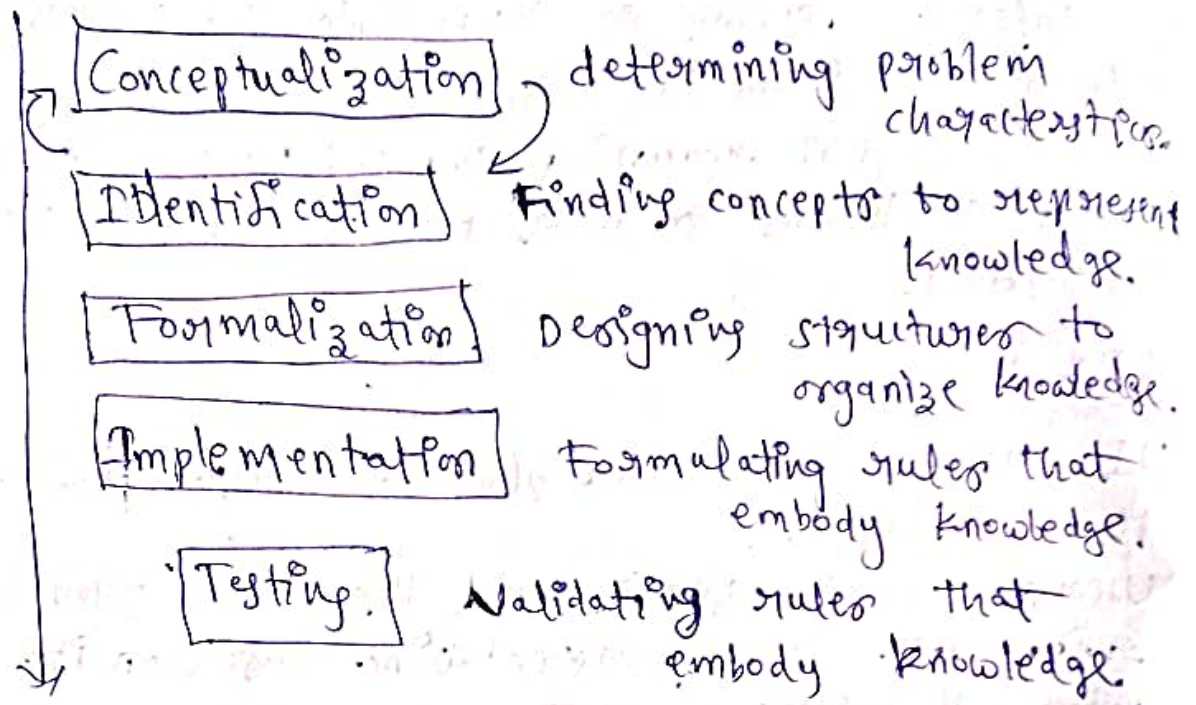 Conceptualization determining problem
characteristics.
IDentification Finding concepts to represent
knowledge.
Formalization Designing structures to
organize knowledge.
Implementation Formulating rules that
embody knowledge.
Testing. Validating rules that
embody knowledge.